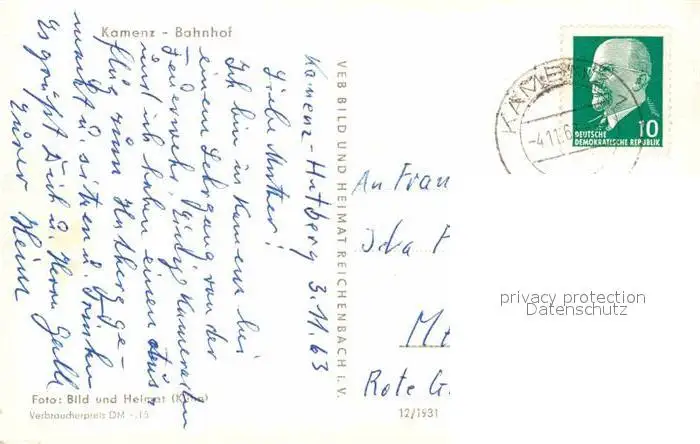 Kamenz - Bahnhof
Kamenz-Hutberg 3.11.63
Liebe Mutter!
Ich bin in Kamenz bei
einem Lehrgang von der
Feuerwehr. Einige Kameraden
und ich haben einen
flug zum Hutberg ge-
macht u. sitzen u. trinken
Es grüßt Dich u. Herrn
Euer Heinz
Foto: Bild und Heimat
Verbraucherpreis DM -.15
VEB BILD UND HEIMAT REICHENBACH I. V.
12/1931
KAMENZ
-4.11.6
DEUTSCHE
DEMOKRATISCHE REPUBLIK
10
An Frau
Ida
Rote G.
privacy protection
Datenschutz